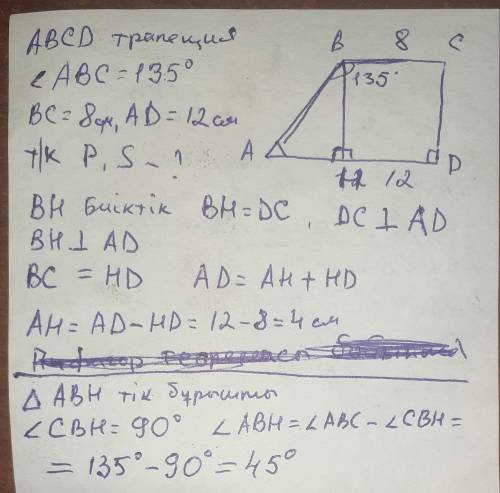 ABCD трапеция
∠ABC = 135°
BC = 8 см, AD = 12 см
т/к P, S - ?
B 8 C
135°
A
H 12 D
BH биіктік BH = DC, DC ⊥ AD
BH ⊥ AD
BC = HD AD = AH + HD
AH = AD - HD = 12 - 8 = 4 см
△ ABH тік бұрышты
∠CBH = 90° ∠ABH = ∠ABC - ∠CBH =
= 135° - 90° = 45°